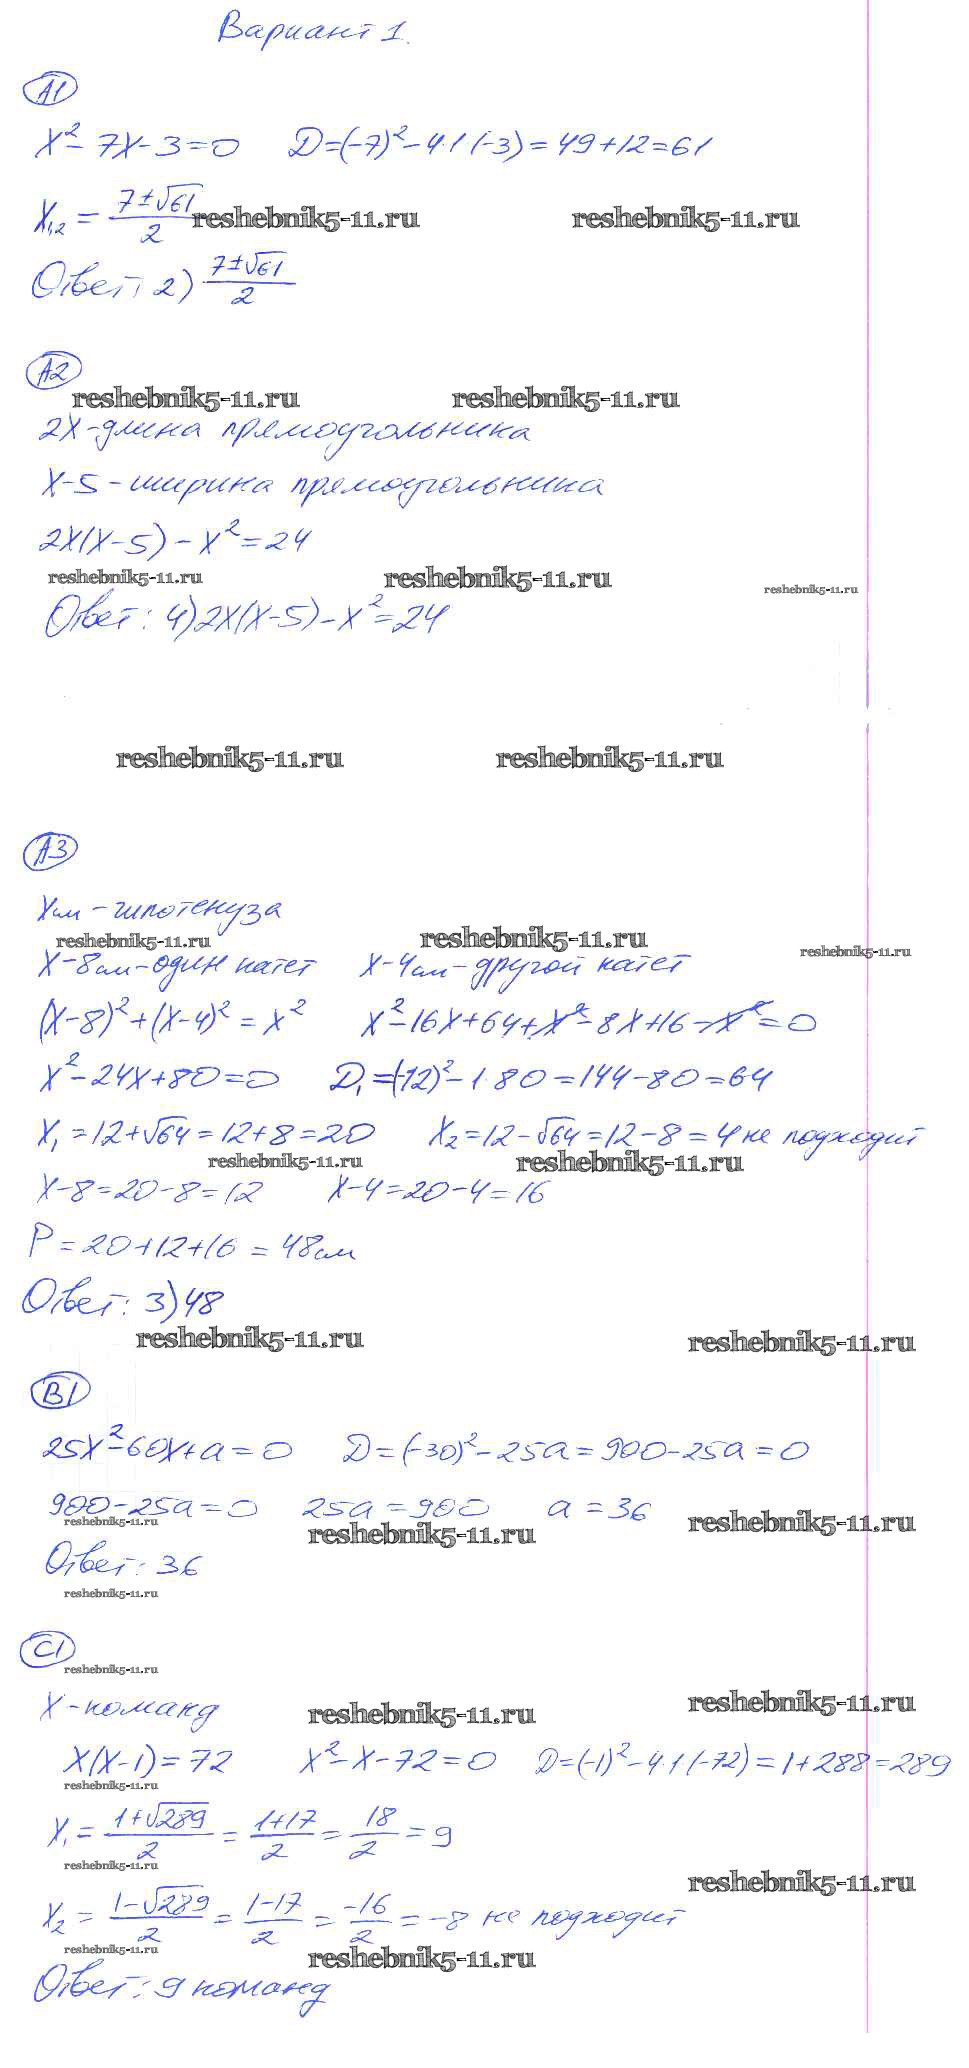 Вариант 1.
А1
x² - 7x - 3 = 0   D = (-7)² - 4·1·(-3) = 49 + 12 = 61
x₁,₂ = (7 ± √61)/2
reshebnik5-11.ru reshebnik5-11.ru
Ответ: 2) (7 ± √61)/2
А2
reshebnik5-11.ru reshebnik5-11.ru
2x - длина прямоугольника
x-5 - ширина прямоугольника
2x(x-5) - x² = 24
reshebnik5-11.ru reshebnik5-11.ru reshebnik5-11.ru
Ответ: 4) 2x(x-5) - x² = 24
reshebnik5-11.ru reshebnik5-11.ru
А3
x см - гипотенуза
reshebnik5-11.ru reshebnik5-11.ru reshebnik5-11.ru
x-8 см - один катет   x-4 см - другой катет
(x-8)² + (x-4)² = x²   x² - 16x + 64 + x² - 8x + 16 - x² = 0
x² - 24x + 80 = 0   D₁ = (-12)² - 1·80 = 144 - 80 = 64
x₁ = 12 + √64 = 12 + 8 = 20   x₂ = 12 - √64 = 12 - 8 = 4 не подходит
reshebnik5-11.ru reshebnik5-11.ru
x - 8 = 20 - 8 = 12   x - 4 = 20 - 4 = 16
P = 20 + 12 + 16 = 48 см
Ответ: 3) 48
reshebnik5-11.ru reshebnik5-11.ru
В1
25x² - 60x + a = 0   D = (-30)² - 25a = 900 - 25a = 0
900 - 25a = 0   25a = 900   a = 36
reshebnik5-11.ru reshebnik5-11.ru reshebnik5-11.ru
Ответ: 36
reshebnik5-11.ru
С1
reshebnik5-11.ru
x - команд
reshebnik5-11.ru reshebnik5-11.ru
x(x-1) = 72   x² - x - 72 = 0   D = (-1)² - 4·1·(-72) = 1 + 288 = 289
reshebnik5-11.ru
x₁ = (1 + √289)/2 = (1 + 17)/2 = 18/2 = 9
reshebnik5-11.ru reshebnik5-11.ru
x₂ = (1 - √289)/2 = (1 - 17)/2 = -16/2 = -8 не подходит
reshebnik5-11.ru reshebnik5-11.ru
Ответ: 9 команд